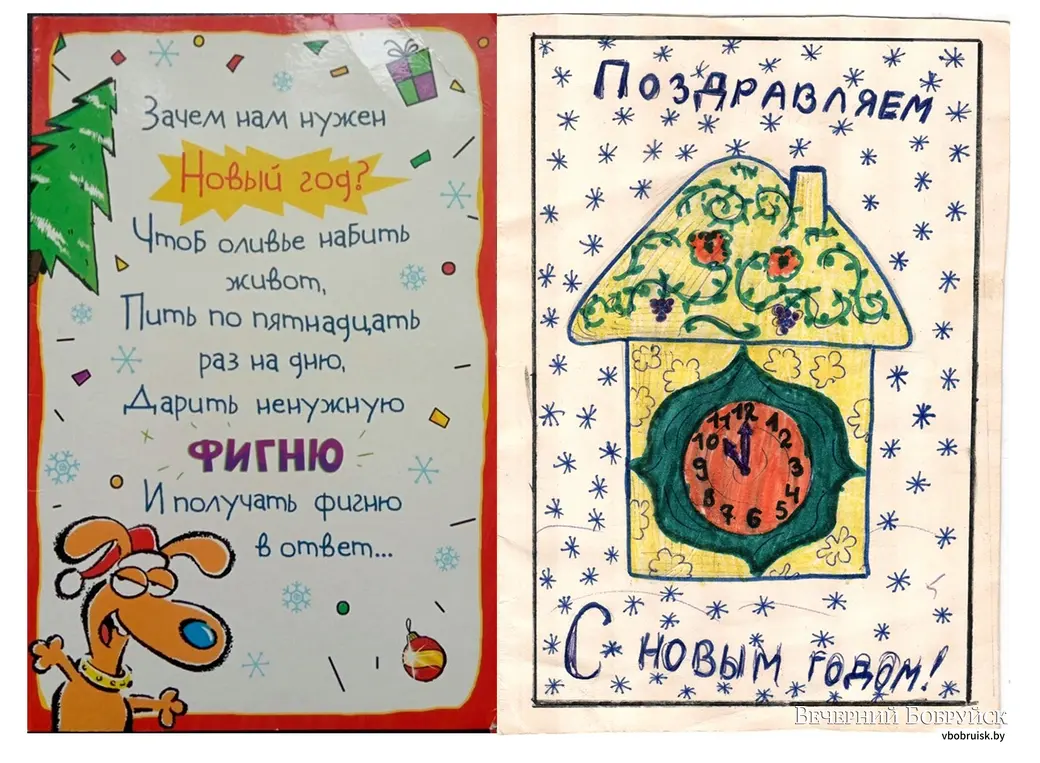 Зачем нам нужен
Новый год?
Чтоб оливье набить
живот,
Пить по пятнадцать
раз на дню,
Дарить ненужную
ФИГНЮ
И получать фигню
в ответ...
ПОЗДРАВЛЯЕМ
11 12 1
10 2
9 3
8 4
7 6 5
С НОВЫМ ГОДОМ!
ВЕЧЕРНИЙ БОБРУЙСК
vbobruisk.by